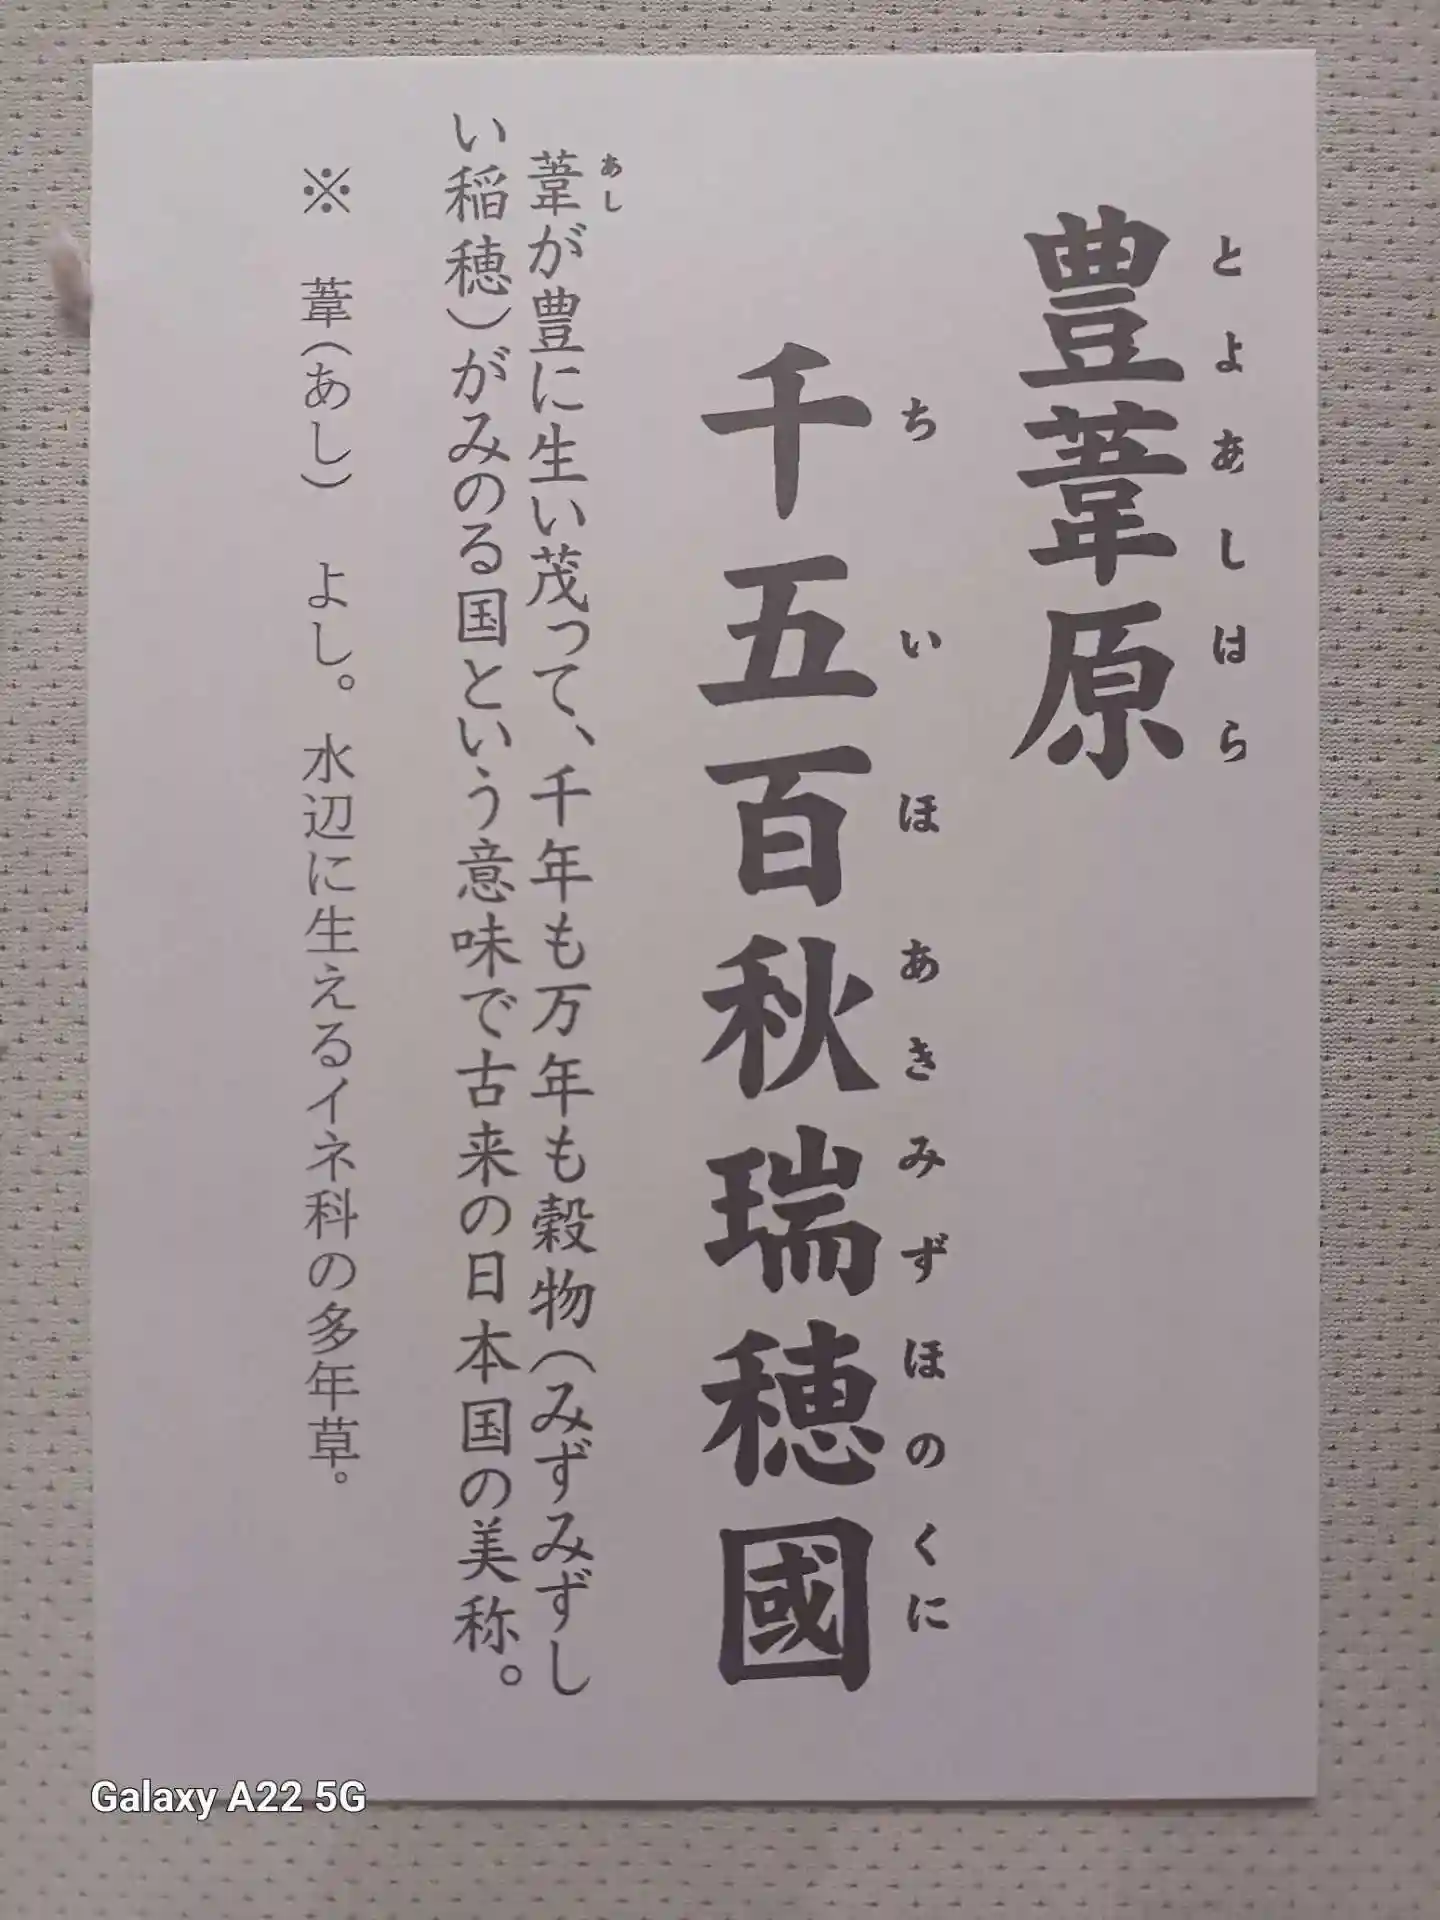 豊葦原
とよあしはら
千五百秋瑞穂國
ちいほあきみずほのくに
葦が豊に生い茂って、千年も万年も穀物(みずみずし
あし
い稲穂)がみのる国という意味で古来の日本国の美称。
※ 葦(あし) よし。水辺に生えるイネ科の多年草。
Galaxy A22 5G